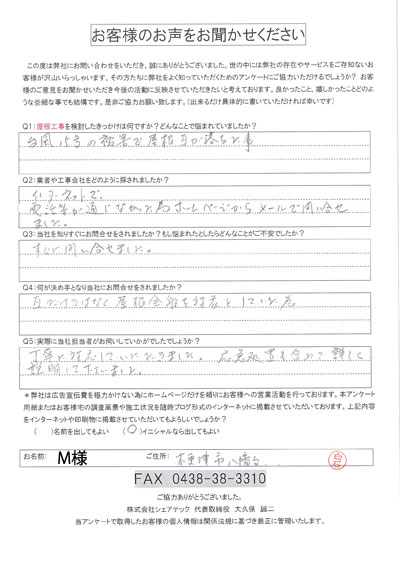 お客様のお声をお聞かせください
この度は弊社にお問い合わせをいただき、誠にありがとうございました。世の中には弊社の存在やサービスをご存知ないお
客様が沢山いらっしゃいます。その方たちに弊社をよく知っていただくためのアンケートにご協力いただけるでしょうか？ お客
様のご意見をお聞かせいただき今後の活動に反映させていただきたいと考えております。良かったこと、嬉しかったことどのよ
うな些細な事でも結構です。是非ご協力お願い致します。（出来るだけ具体的に書いていただければ幸いです）
Q1：屋根工事を検討したきっかけは何ですか？どんなことで悩まれていましたか？
台風15号の被害で屋根瓦が落ちた事
Q2：業者や工事会社をどのように探されましたか？
インターネットで。
電話等が通じなかった為ホームページからメールで問い合せ
ました。
Q3：当社を知りすぐにお問合せをされましたか？もし悩まれたとしたらどんなことがご不安でしたか？
すぐに問い合せました。
Q4：何が決め手となり当社にお問合せをされましたか？
瓦だけではなく屋根全般を対象としている為
Q5：実際に当社担当者がお伺いしていかがでしたでしょうか？
丁寧に対応していただきました。応急処置も含めて詳しく
説明して下さいました。
＊弊社は広告宣伝費を極力かけない為にホームページだけを頼りにお客様への営業活動を行っております。本アンケート
用紙またはお客様宅の調査風景や施工状況を随時ブログ形式のインターネットに掲載させていただいております。上記内容
をインターネットや印刷物に掲載させていただいてもよろしいでしょうか？
（　）名前を出してもよい （○）イニシャルなら出してもよい
お名前： M様 ご住所： 木更津市八幡台
FAX 0438-38-3310
ご協力ありがとうございました。
株式会社シェアテック 代表取締役 大久保 誠二
当アンケートで取得したお客様の個人情報は関係法規に基づき厳正に管理いたします。